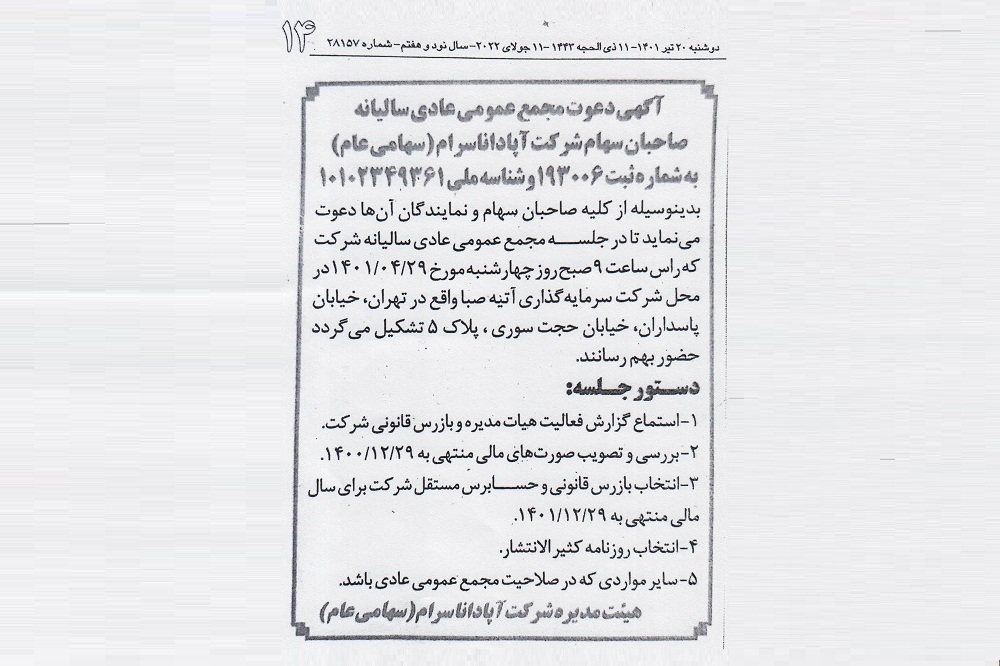 ۱۴
دوشنبه ۲۰ تیر ۱۴۰۱-۱۱ ذی الحجه ۱۴۴۳ -۱۱ جولای ۲۰۲۲-سال نود و هفتم- شماره ۲۸۱۵۷
آگهی دعوت مجمع عمومی عادی سالیانه
صاحبان سهام شرکت آپادانا سرام (سهامی عام)
به شماره ثبت ۱۹۳۰۰۶ و شناسه ملی ۱۰۱۰۲۳۴۹۳۶۱
بدینوسیله از کلیه صاحبان سهام و نمایندگان آن‌ها دعوت
می‌نماید تا در جلسه مجمع عمومی عادی سالیانه شرکت
که راس ساعت ۹ صبح روز چهارشنبه مورخ ۱۴۰۱/۰۴/۲۹ در
محل شرکت سرمایه‌گذاری آتیه صبا واقع در تهران، خیابان
پاسداران، خیابان حجت سوری ، پلاک ۵ تشکیل می‌گردد
حضور بهم رسانند.
دستور جلسه:
۱-استماع گزارش فعالیت هیات مدیره و بازرس قانونی شرکت.
۲-بررسی و تصویب صورت‌های مالی منتهی به ۱۴۰۰/۱۲/۲۹.
۳-انتخاب بازرس قانونی و حسابرس مستقل شرکت برای سال
مالی منتهی به ۱۴۰۱/۱۲/۲۹.
۴-انتخاب روزنامه کثیر الانتشار.
۵-سایر مواردی که در صلاحیت مجمع عمومی عادی باشد.
هیئت مدیره شرکت آپادانا سرام (سهامی عام)